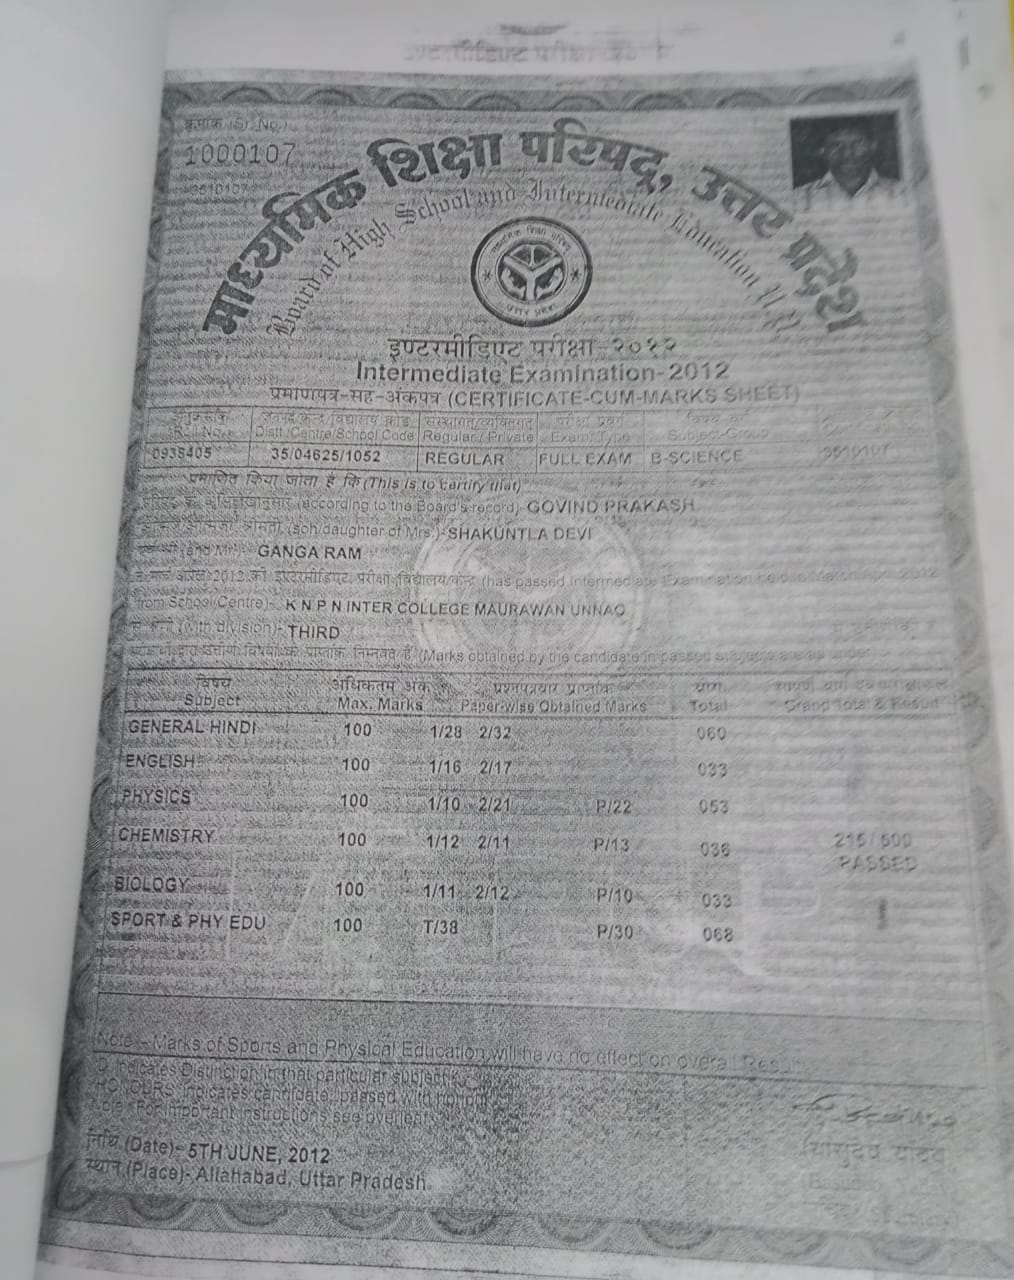 क्रमांक (Sr. No.)
1000107
3610107
माध्यमिक शिक्षा परिषद्, उत्तर प्रदेश
Board of High School and Intermediate Education U.P.
इण्टरमीडिएट परीक्षा-२०१२
Intermediate Examination-2012
प्रमाणपत्र-सह-अंकपत्र (CERTIFICATE-CUM-MARKS SHEET)
Roll No. Distt./Centre/School Code Regular / Private Exam. Type Subject-Group
0938405 35/04625/1052 REGULAR FULL EXAM B-SCIENCE 3610107
प्रमाणित किया जाता है कि (This is to certify that)
(according to the Board's record)- GOVIND PRAKASH
(son/daughter of Mrs.)- SHAKUNTLA DEVI
(and Mr.)- GANGA RAM
2012 की इण्टरमीडिएट परीक्षा विद्यालय/केन्द्र (has passed Intermediate Examination held in March April 2012
from School/Centre)- K N P N INTER COLLEGE MAURAWAN UNNAO
(with division)- THIRD
(Marks obtained by the candidate in passed subjects are as under)
विषय अधिकतम अंक प्रश्नपत्रवार प्राप्तांक योग
Subject Max. Marks Paper-wise Obtained Marks Total Grand Total & Result
GENERAL HINDI 100 1/28 2/32 060
ENGLISH 100 1/16 2/17 033
PHYSICS 100 1/10 2/21 P/22 053
CHEMISTRY 100 1/12 2/11 P/13 036 215/500
PASSED
BIOLOGY 100 1/11 2/12 P/10 033
SPORT & PHY EDU 100 T/38 P/30 068
Note :- Marks of Sports and Physical Education will have no effect on overall Result
D indicates Distinction in that particular subject
HONOURS indicates candidate passed with honour
Note : For important instructions see overleaf
तिथि (Date)- 5TH JUNE, 2012
स्थान (Place)- Allahabad, Uttar Pradesh.
वासुदेव यादव